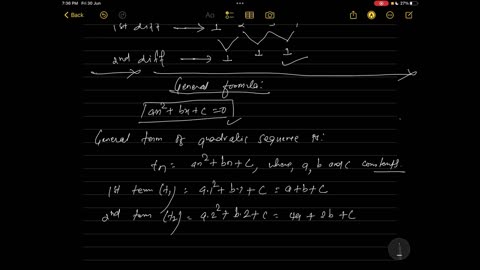 7:36 PM Fri 30 Jun
27%
1st diff → 1 2
2nd diff → 1 1 1
General formula:
an²+bn+c=0
General term of quadratic sequence is:
tn = an²+bn+c, where, a, b and c constants
1st term (t₁) = a.1²+b.1+c = a+b+c
2nd term (t₂) = a.2²+b.2+c = 4a+2b+c